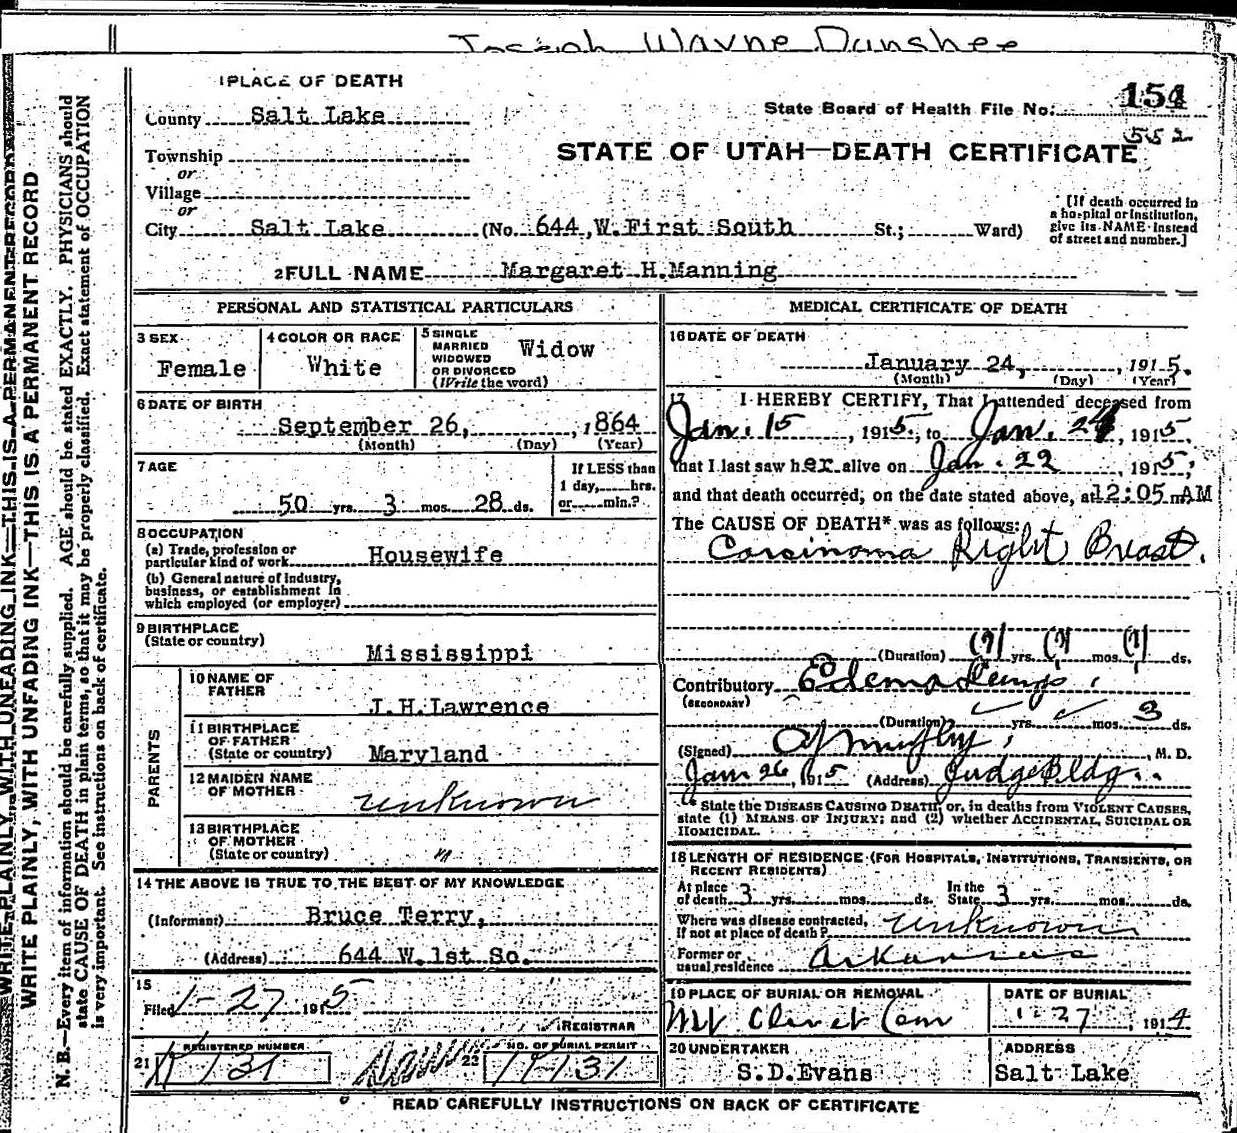 Joseph Wayne Dunshee
1 PLACE OF DEATH
State Board of Health File No. 154
552
County Salt Lake
Township
or
Village
or
City Salt Lake (No. 644, W. First South St.; Ward)
STATE OF UTAH—DEATH CERTIFICATE
[If death occurred in
a hospital or institution,
give its NAME instead
of street and number.]
2 FULL NAME Margaret H. Manning
PERSONAL AND STATISTICAL PARTICULARS
3 SEX
Female
4 COLOR OR RACE
White
5 SINGLE
MARRIED
WIDOWED
OR DIVORCED
(Write the word)
Widow
6 DATE OF BIRTH
September 26, , 1864
(Month) (Day) (Year)
7 AGE
50 yrs. 3 mos. 28 ds.
If LESS than
1 day, hrs.
or min.?
8 OCCUPATION
(a) Trade, profession or
particular kind of work Housewife
(b) General nature of industry,
business, or establishment in
which employed (or employer)
9 BIRTHPLACE
(State or country)
Mississippi
PARENTS
10 NAME OF
FATHER
J.H. Lawrence
11 BIRTHPLACE
OF FATHER
(State or country) Maryland
12 MAIDEN NAME
OF MOTHER
unknown
13 BIRTHPLACE
OF MOTHER
(State or country) "
14 THE ABOVE IS TRUE TO THE BEST OF MY KNOWLEDGE
(Informant) Bruce Terry,
(Address) 644 W. 1st So.
15
Filed 1-27 1915
REGISTRAR
21 REGISTERED NUMBER
K 131
22 NO. OF BURIAL PERMIT
K-131
MEDICAL CERTIFICATE OF DEATH
16 DATE OF DEATH
January 24, , 1915.
(Month) (Day) (Year)
17 I HEREBY CERTIFY, That I attended deceased from
Jan. 15 , 1915, to Jan. 24, 1915,
that I last saw her alive on Jan. 22 , 1915,
and that death occurred, on the date stated above, at 12:05 m. AM
The CAUSE OF DEATH* was as follows:
Carsinoma Right Breast.
(Duration) (?) yrs. (?) mos. (?) ds.
Contributory Edema Lungs.
(SECONDARY)
(Duration) yrs. mos. 3 ds.
(Signed) , M. D.
Jan 26, 1915 (Address) Judge Bldg.
* State the DISEASE CAUSING DEATH, or, in deaths from VIOLENT CAUSES,
state (1) MEANS OF INJURY; and (2) whether ACCIDENTAL, SUICIDAL OR
HOMICIDAL.
18 LENGTH OF RESIDENCE (FOR HOSPITALS, INSTITUTIONS, TRANSIENTS, OR
RECENT RESIDENTS)
At place
of death 3 yrs. mos. ds.
In the
State 3 yrs. mos. ds.
Where was disease contracted,
If not at place of death? unknown
Former or
usual residence Arkansas
19 PLACE OF BURIAL OR REMOVAL
Mt Olivet Cem
DATE OF BURIAL
1-27, 1914
20 UNDERTAKER
S.D. Evans
ADDRESS
Salt Lake
READ CAREFULLY INSTRUCTIONS ON BACK OF CERTIFICATE
WRITE PLAINLY WITH UNFADING INK—THIS IS A PERMANENT RECORD
WRITE PLAINLY, WITH UNFADING INK—THIS IS A PERMANENT RECORD
N. B.—Every item of information should be carefully supplied. AGE should be stated EXACTLY. PHYSICIANS should
state CAUSE OF DEATH in plain terms, so that it may be properly classified. Exact statement of OCCUPATION
is very important. See instructions on back of certificate.